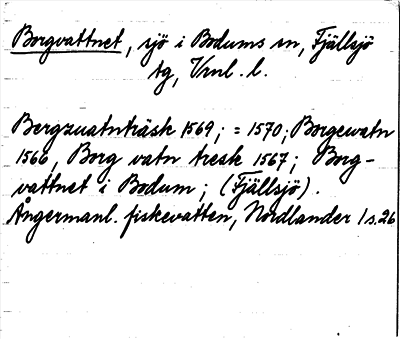 Borgvattnet, sjö i Bodums sn, Fjällsjö
tg, Vrnl. l.
Bergzuatnträsk 1569; = 1570; Borgewatn
1566, Borg vatn tresk 1567; Borg-
vattnet i Bodum; (Fjällsjö).
Ångermanl. fiskevatten, Nordlander / s. 26